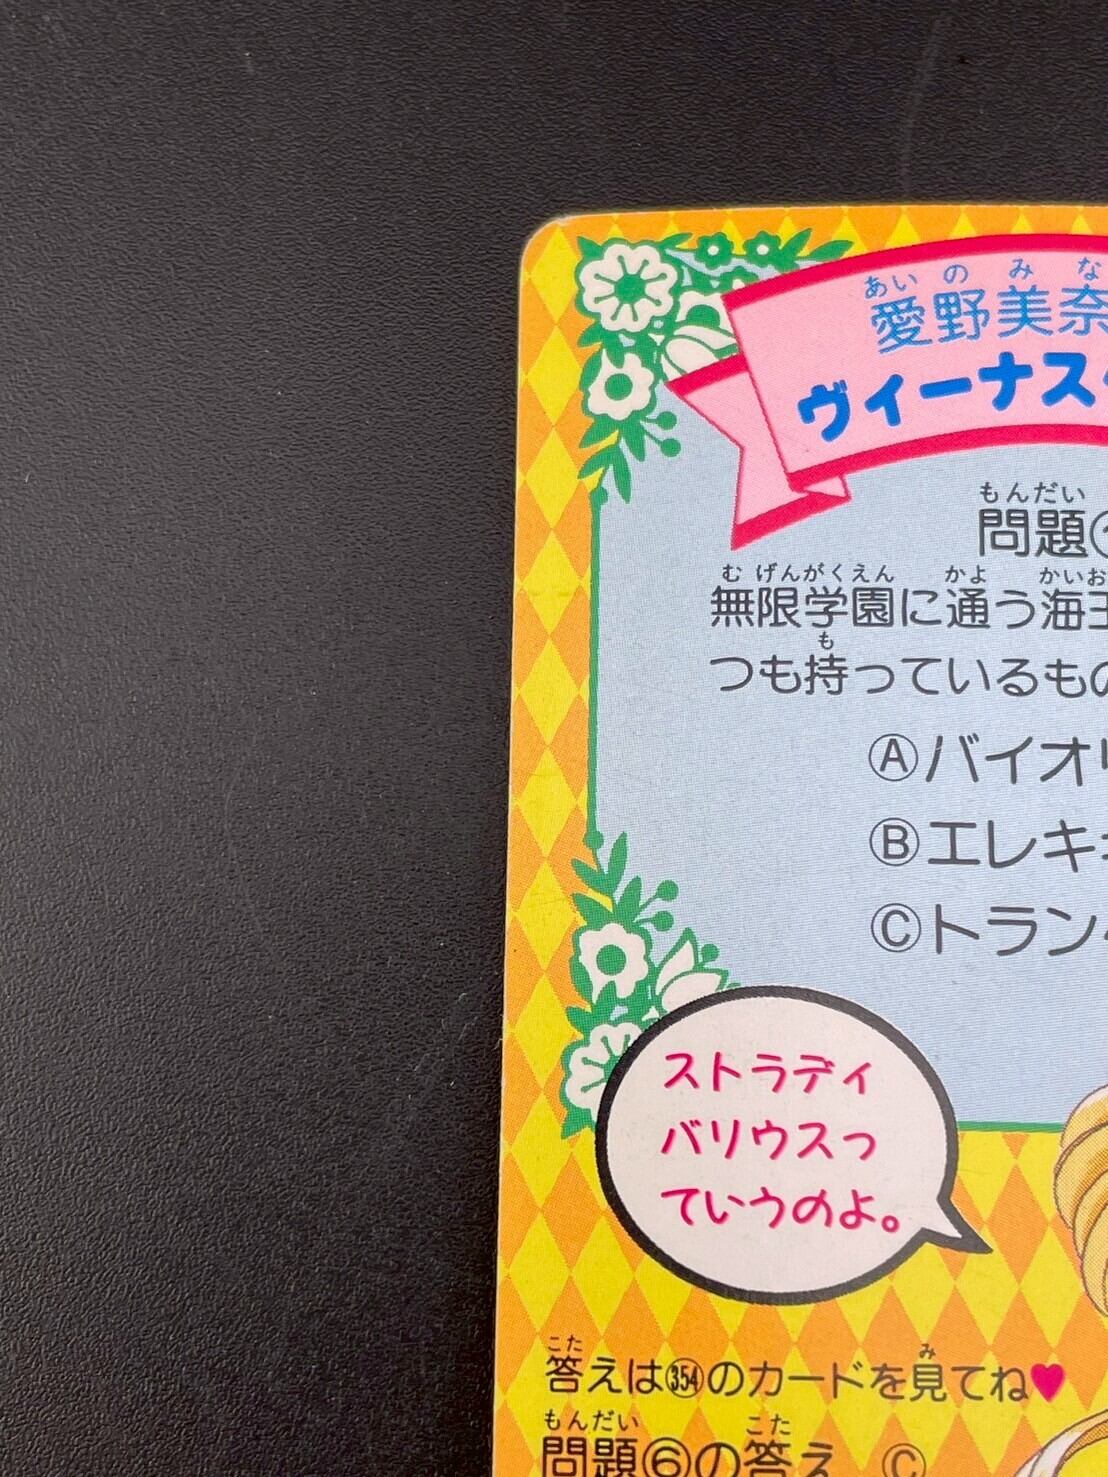 あいのみな
愛野美奈
ヴィーナス
もんだい
問題
むげんがくえん かよ かいお
無限学園に通う海王
も
つも持っているもの
Ⓐバイオリ
Ⓑエレキ
Ⓒトラン
ストラディ
バリウスっ
ていうのよ。
こた み
答えは354のカードを見てね♥
もんだい こた
問題⑥の答え Ⓒ